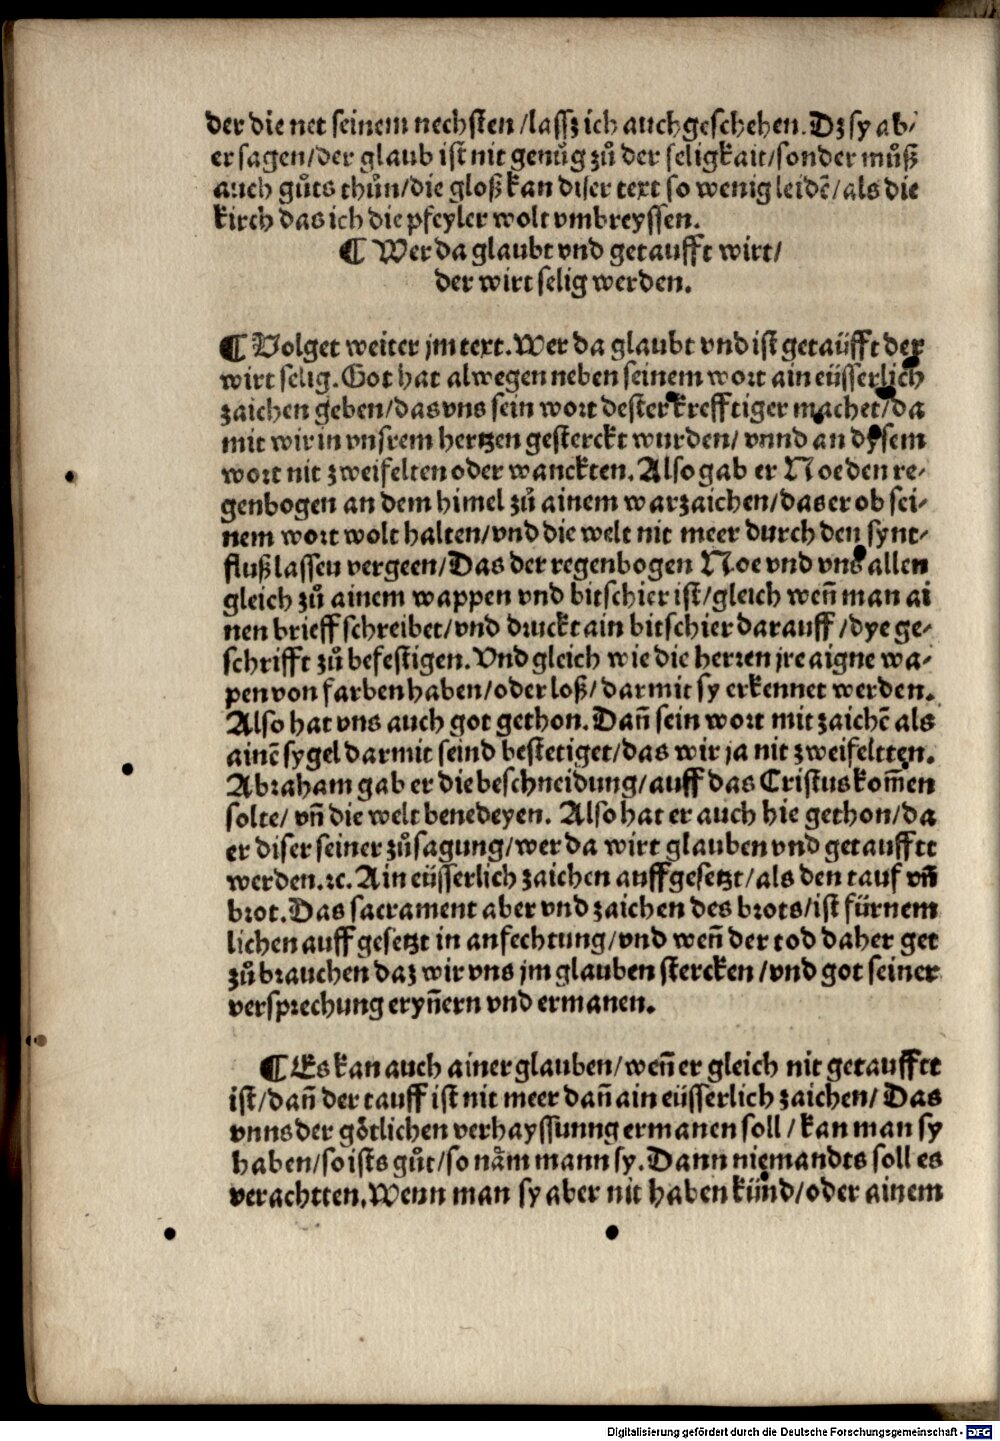 der die net seinem nechsten /lassz ich auch geschehen. Dz sy ab⸗
er sagen/der glaub ist nit genůg zů der seligkait/sonder můß
auch gůts thůn/die gloß kan diser text so wenig leidē/als die
kirch das ich die pfeyler wolt vmbreyssen.
¶ Wer da glaubt vnd getaufft wirt/
der wirt selig werden.
¶ Volget weiter jm text. Wer da glaubt vnd ist getaüfft der
wirt selig. Got hat alwegen neben seinem wort ain eüsserlich
zaichen geben/das vns sein wort dester krefftiger machet/da
mit wir in vnsrem hertzen gesterckt wurden/ vnnd an dysem
wort nit zweifelten oder wanckten. Also gab er Noe den re⸗
genbogen an dem himel zů ainem warzaichen/das er ob sei⸗
nem wort wolt halten/vnd die welt nit meer durch den synt⸗
fluß lassen vergeen/Das der regenbogen Noe vnd vns allen
gleich zů ainem wappen vnd bitschier ist/gleich weñ man ai
nen brieff schreibet/vnd druckt ain bitschier darauff /dye ge⸗
schrifft zů befestigen. Vnd gleich wie die herren jre aigne wa⸗
pen von farben haben/oder loß/ darmit sy erkennet werden.
Also hat vns auch got gethon. Dañ sein wort mit zaichē als
ainē sygel darmit seind bestetiget/das wir ja nit zweifeltten.
Abraham gab er die beschneidung/auff das Cristus kom̃en
solte/ vñ die welt benedeyen. Also hat er auch hie gethon/da
er diser seiner zůsagung/wer da wirt glauben vnd getaufftt
werden.ꝛc. Ain eüsserlich zaichen auffgesetzt/als den tauf vñ
brot. Das sacrament aber vnd zaichen des brots/ist fürnem
lichen auff gesetzt in anfechtung/vnd weñ der tod daher get
zů brauchen daz wir vns jm glauben stercken /vnd got seiner
versprechung eryñern vnd ermanen.
¶ Es kan auch ainer glauben/weñ er gleich nit getaufftt
ist/dañ der tauff ist nit meer dañ ain eüsserlich zaichen/ Das
vnns der götlichen verhayssunng ermanen soll / kan man sy
haben/so ists gůt/so näm mann sy. Dann niemandts soll es
verachtten. Wenn man sy aber nit haben künd/oder ainem
Digitalisierung gefördert durch die Deutsche Forschungsgemeinschaft - DFG